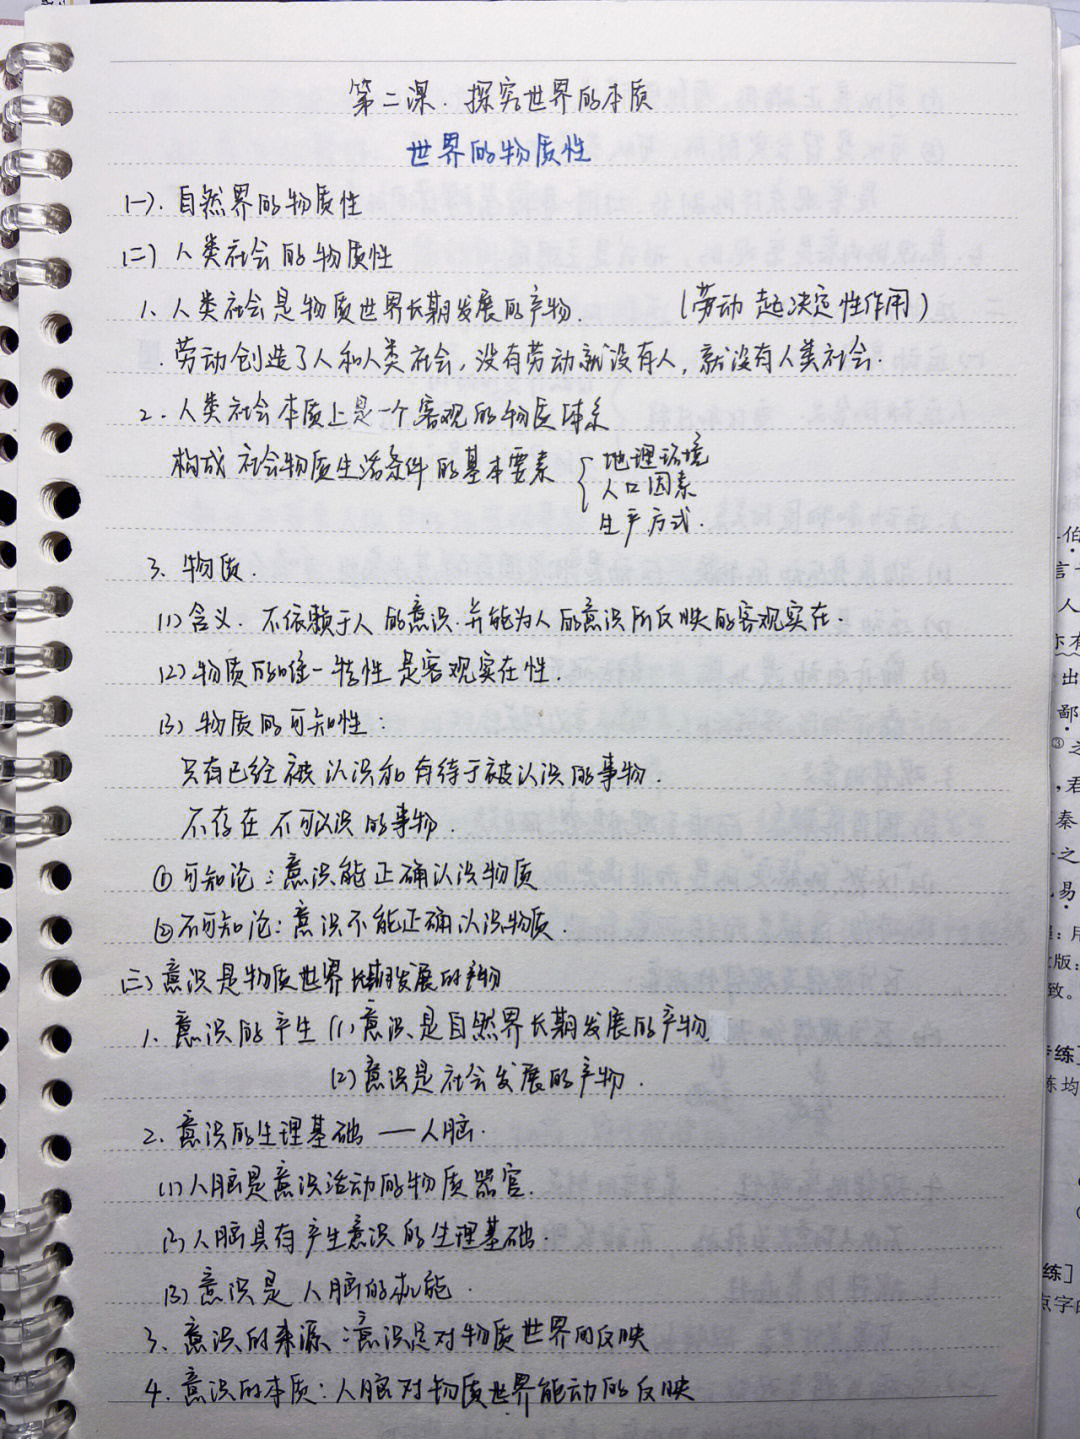 第二课. 探究世界的本质
世界的物质性
(一). 自然界的物质性
(二) 人类社会的物质性
1、人类社会是物质世界长期发展的产物. (劳动 起决定性作用)
劳动创造了人和人类社会, 没有劳动就没有人, 就没有人类社会.
2. 人类社会本质上是一个客观的物质体系
构成社会物质生活条件的基本要素 { 地理环境
人口因素
生产方式.
3. 物质.
(1) 含义. 不依赖于人的意识.并能为人的意识所反映的客观实在.
(2) 物质的唯一特性是客观实在性.
(3) 物质的可知性:
只有已经被认识和有待于被认识的事物.
不存在不可认识的事物.
①可知论:意识能正确认识物质
②不可知论:意识不能正确认识物质.
(三)意识是物质世界长期发展的产物
1. 意识的产生 (1) 意识是自然界长期发展的产物
(2)意识是社会发展的产物.
2. 意识的生理基础 —人脑.
(1)人脑是意识活动的物质器官.
(2)人脑具有产生意识的生理基础.
(3)意识是人脑的机能.
3. 意识的来源:意识是对物质世界的反映
4. 意识的本质:人脑对物质世界能动的反映
伯
言
人
出
鄙
③之
,君
秦
之
易
版:
致。
练]
练均
练]
点字